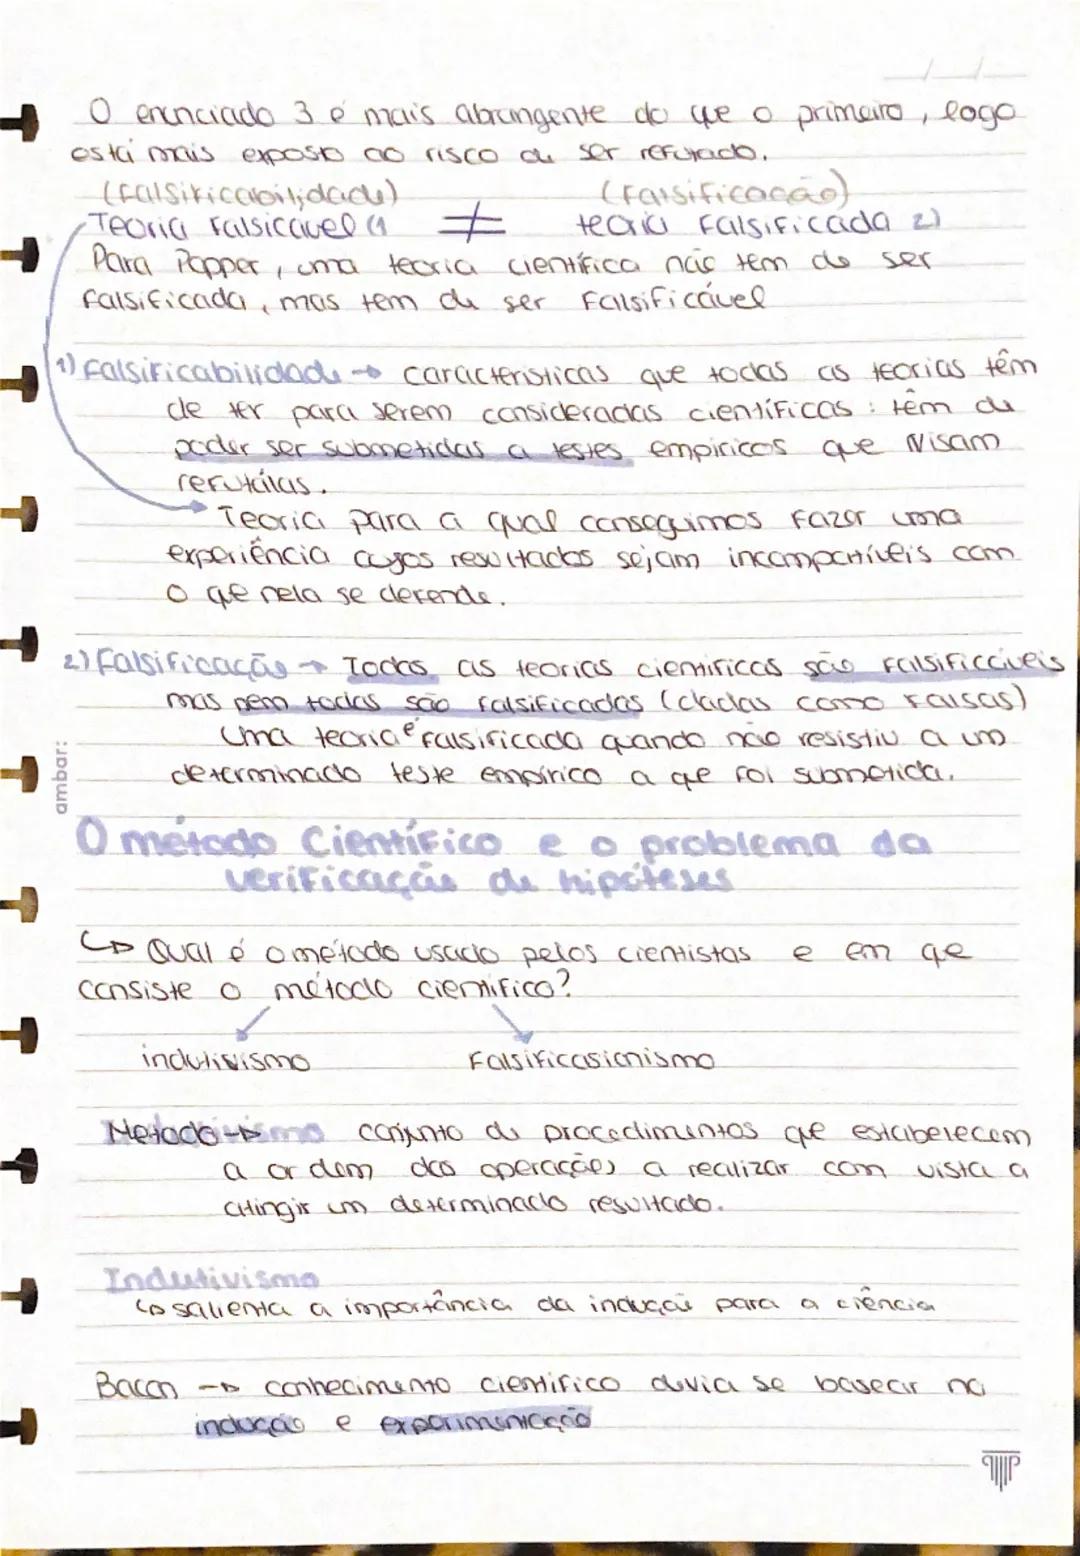 O enunciado 3 é mais abrangente do que o primeiro, logo
está mais exposto ao risco de ser refutado.
(falsificabilidade) (falsificação)
Teoria falsicável (1 ≠ teoria falsificada 2)
Para Popper, uma teoria científica não tem de ser
falsificada, mas tem de ser falsificável
1) Falsificabilidade → características que todas as teorias têm
de ter para serem consideradas científicas: têm de
poder ser submetidas a testes empíricos que visam
refutálas.
Teoria para a qual conseguimos fazer uma
experiência cujos resultados sejam incompatíveis com
o que nela se defende.
2) Falsificação → Todas as teorias científicas são falsificáveis
mas nem todas são falsificadas (dadas como falsas)
Uma teoria é falsificada quando não resistiu a um
determinado teste empírico a que foi submetida.
ambar:
O método Científico e o problema da
verificação de hipóteses
↳ Qual é o método usado pelos cientistas e em que
consiste o método científico?
indutivismo Falsificasionismo
Metodo → conjunto de procedimentos que estabelecem
a ordem das operações a realizar com vista a
atingir um determinado resultado.
Indutivismo
↳ salienta a importância da indução para a ciência
Bacon → conhecimento científico devia se basear na
indução e experimentação